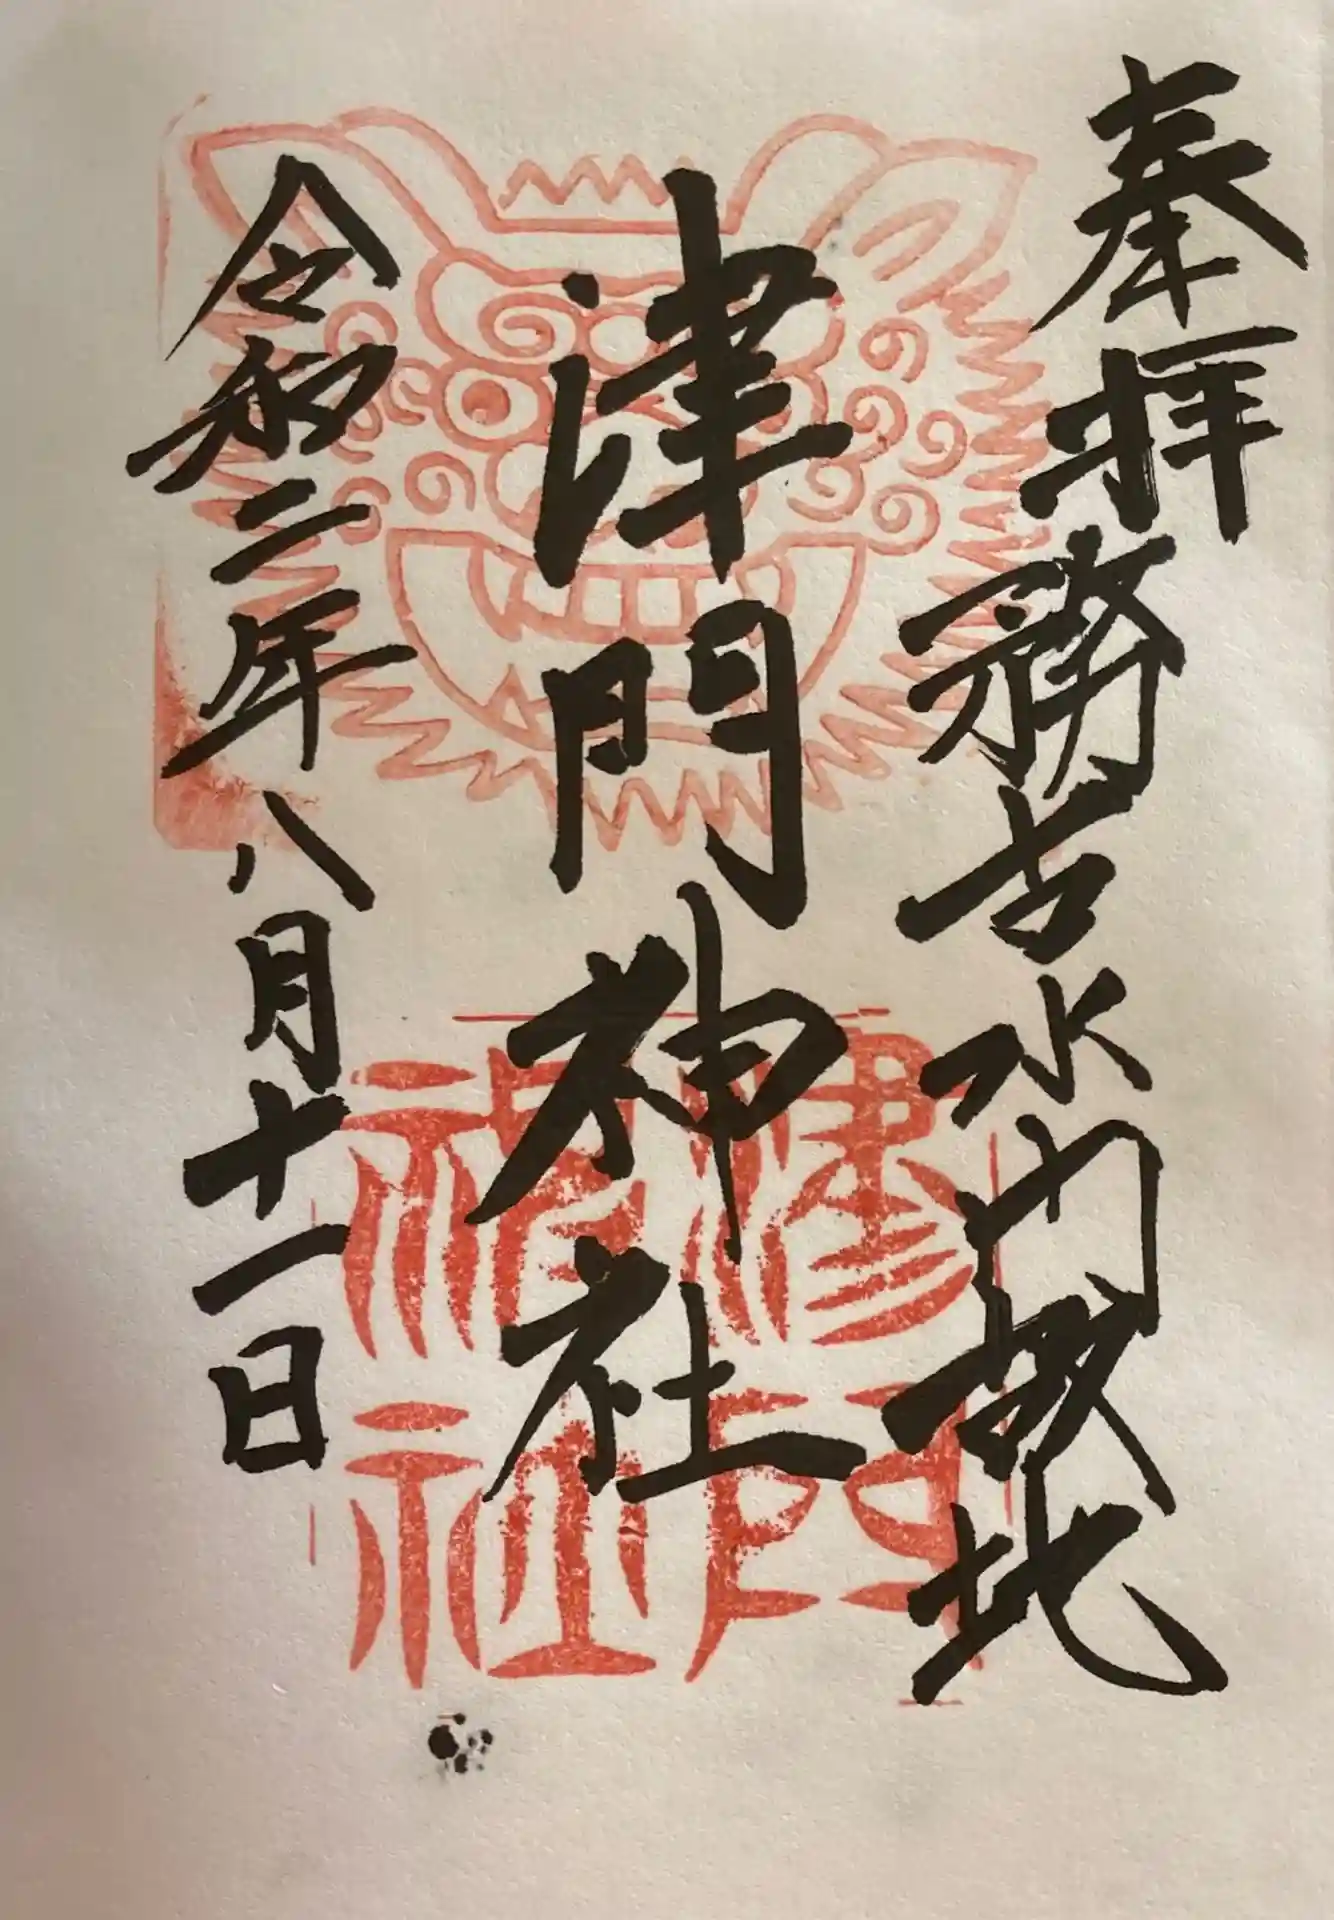 奉拝
務古水門故地
津門神社
令和二年八月十一日
津門神社